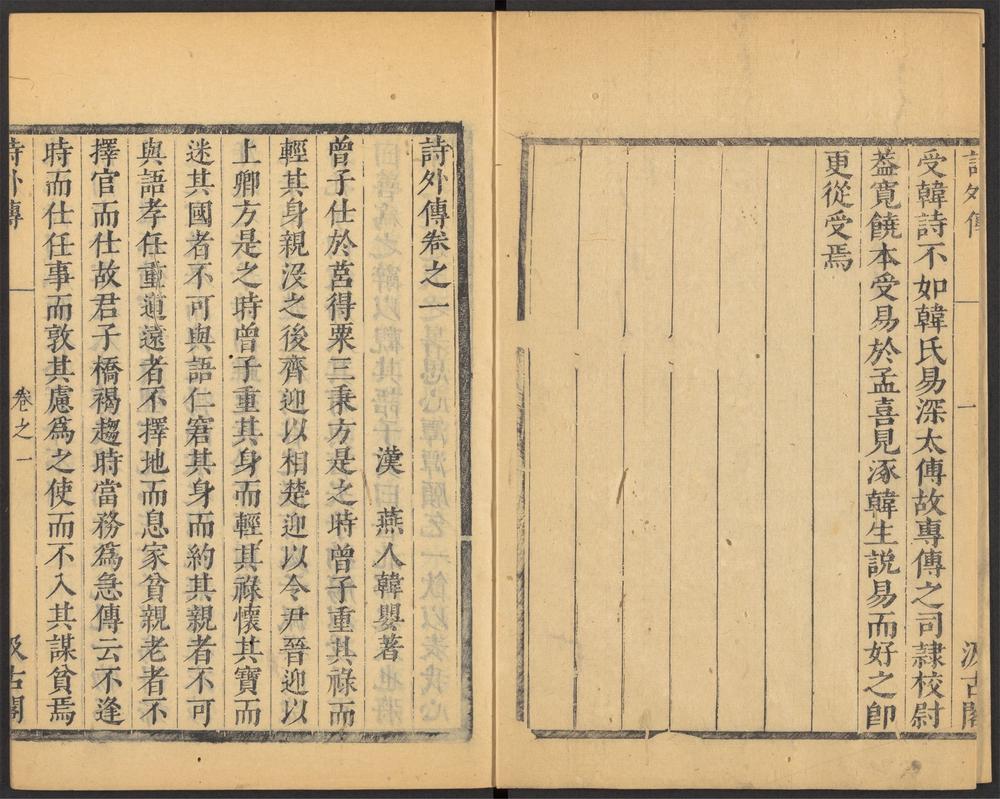 詩外傳
一
汲古閣
受韓詩不如韓氏易深太傳故專傳之司隷校尉
葢寬饒本受易於孟喜見涿韓生説易而好之卽
更從受焉
詩外傳卷之一
漢 燕人韓嬰著
曾子仕於莒得粟三秉方是之時曾子重其祿而
輕其身親沒之後齊迎以相楚迎以令尹晉迎以
上卿方是之時曾子重其身而輕其祿懷其寶而
迷其國者不可與語仁窘其身而約其親者不可
與語孝任重道遠者不擇地而息家貧親老者不
擇官而仕故君子橋褐趨時當務爲急傳云不逢
時而仕任事而敦其慮爲之使而不入其謀貧焉
詩外傳
卷之一
汲古閣